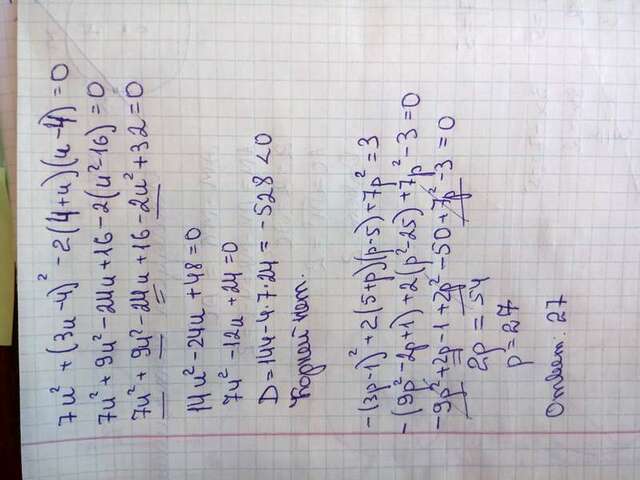 7u² + (3u-4)² - 2(4+u)(u-4) = 0
7u² + 9u² - 24u + 16 - 2(u²-16) = 0
7u² + 9u² - 24u + 16 - 2u² + 32 = 0
14u² - 24u + 48 = 0
7u² - 12u + 24 = 0
D = 144 - 4·7·24 = -528 < 0
Корней нет.
-(3p-1)² + 2(5+p)(p-5) + 7p² = 3
-(9p² - 2p + 1) + 2(p² - 25) + 7p² - 3 = 0
-9p² + 2p - 1 + 2p² - 50 + 7p² - 3 = 0
2p = 54
p = 27
Ответ: 27